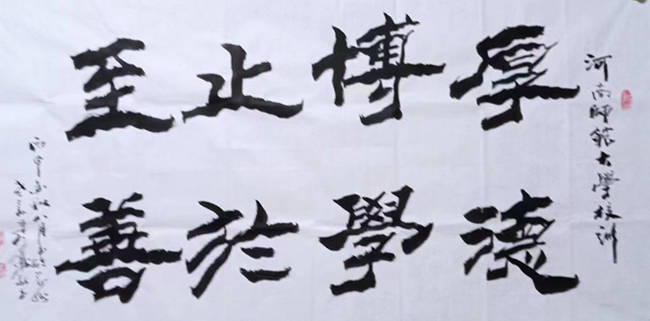 河南師範大學校训
厚德
博學
止於
至善
丙申